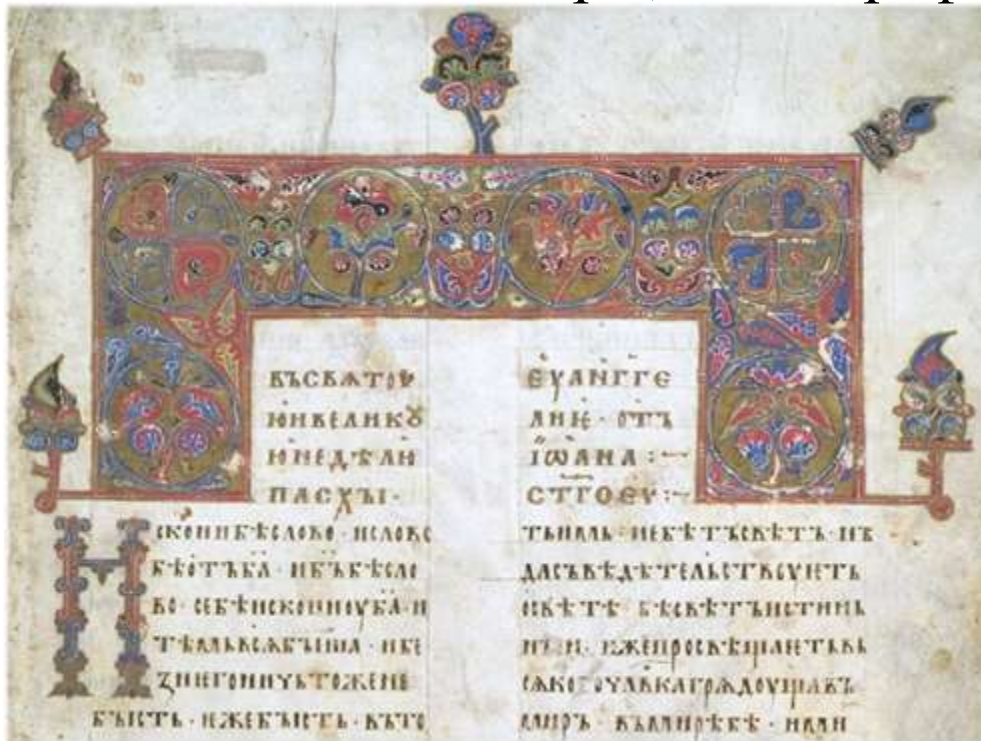 ВЪСВѦТОУ
ЮИВЕЛИКѸ
ЮНЕДѢЛЮ
ПАСХЪІ·
ИСКОНИБѢСЛОВО·ИСЛОВО
БѢОТЪБ҃А·ИБ҃ЪБѢСЛО
ВО·СЕБѢИСКОНИОУБ҃А·И
ТѢМЬВСѦБЫША·ИБЕ
ЗНЕГОНИЧЬТОЖЕНЕ
БЪІСТЬ·ѤЖЕБЪІСТЬ·ВЪТО
ЕУАНГГЕ
ЛИѤ·ОТЪ
ІѠАНА:~
СТ҃ГОЕУ:~
НЕБѢТЪСВѢТЪ·НЪ
ДАСЪВѢДѢТЕЛЬСТВОУѤТЬ
ОСВѢТѢ·БѢСВѢТЪИСТИНЬ
НЪІИ·ИЖЕПРОСВѢЩАѤТЬВЬ
СѦКОГОЧЛ҃ВКАГРѦДОУЩАВЪ
МИРЪ·ВЪМИРѢБѢ·ИМИ